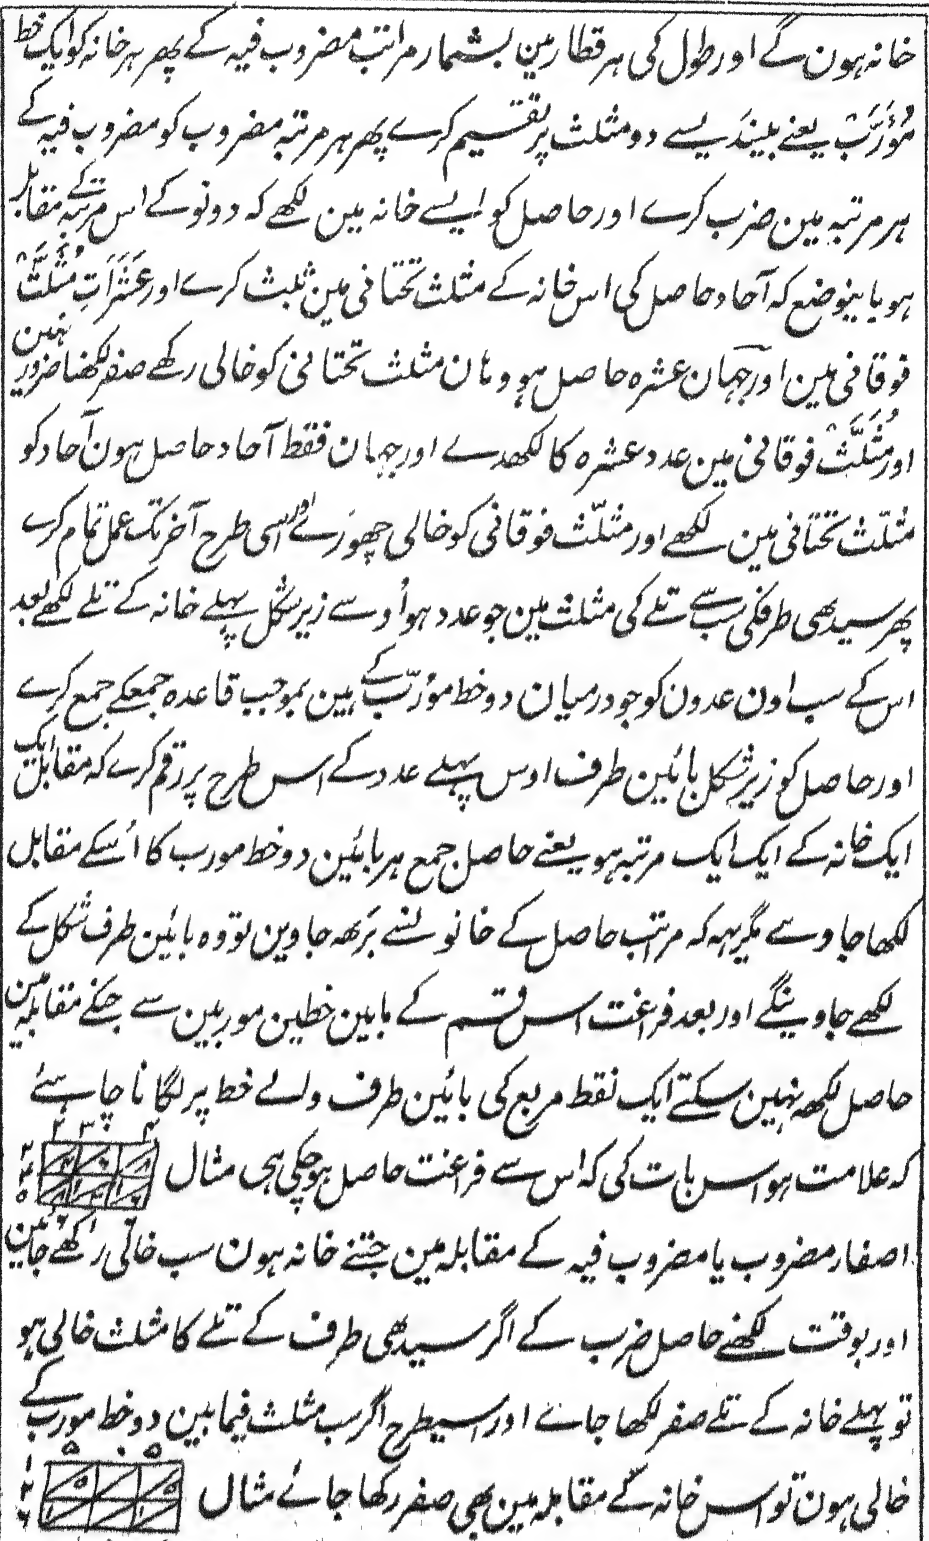 خانہ ہون گے اور طول کی ہر قطار مین بشمار مراتب مضروب فیہ کے پھر ہر خانہ کو ایک خط
مُوَرَّب یعنے بیندیسے دو مثلث پر تقسیم کرے پھر ہر مرتبہ مضروب کو مضروب فیہ کے
ہر مرتبہ مین ضرب کرے اور حاصل کو ایسے خانہ مین لکھے کہ دونو کے اس مرتبہ کے مقابل
ہو باینوضع کہ آحاد حاصل کی اس خانہ کے مثلث تحتانی مین ثبت کرے اور عَشَرَاتِ مُثَلَّث
فوقانی مین اور جہان عشرہ حاصل ہو وہان مثلث تحتانی کو خالی رکھے صفر لکھنا ضرور نہین
اور مُثَلَّث فوقانی مین عدد عشرہ کا لکھدے اور جہان فقط آحاد حاصل ہون آحاد کو
مثلّث تحتانی مین لکھے اور مثلّث فوقانی کو خالی چھوڑے اور اسی طرح آخر تک عمل تمام کرے
پھر سیدھی طرفکی سب سے تلے کی مثلث مین جو عدد ہو اُوسے زیر شکل پہلے خانہ کے تلے لکھے بعد
اس کے سب اون عددون کو جو درمیان دو خط مورّب کے ہین بموجب قاعدہ جمعکے جمع کرے
اور حاصل کو زیر شکل بائین طرف اوس پہلے عدد کے اس طرح پر رقم کرے کہ مقابل ایک
ایک خانہ کے ایک ایک مرتبہ ہو یعنے حاصل جمع ہر بائین دو خط مورب کا اُسکے مقابل
لکھا جاوے مگر یہہ کہ مرتب حاصل کے خانونسے بڑھ جاوین تو وہ بائین طرف شکل کے
لکھے جاوینگے اور بعد فراغت اس قسم کے مابین خطین موربین سے جنکے مقابلہ مین
حاصل لکھ نہین سکتے ایک نقط مربع کی بائین طرف والے خط پر لگانا چاہئے
کہ علامت ہو اس بات کی کہ اس سے فراغت حاصل ہو چکی ہی مثال
اصفار مضروب یا مضروب فیہ کے مقابلہ مین جتنے خانہ ہون سب خالی رکھے جاین
اور بوقت لکھنے حاصل ضرب کے اگر سیدھی طرف کے تلے کا مثلث خالی ہو
تو پہلے خانہ کے تلے صفر لکھا جاے اور اسیطرح اگر سب مثلث فیمابین دو خط مورب کے
خالی ہون تو اس خانہ کے مقابلہ مین بھی صفر رکھا جائے مثال